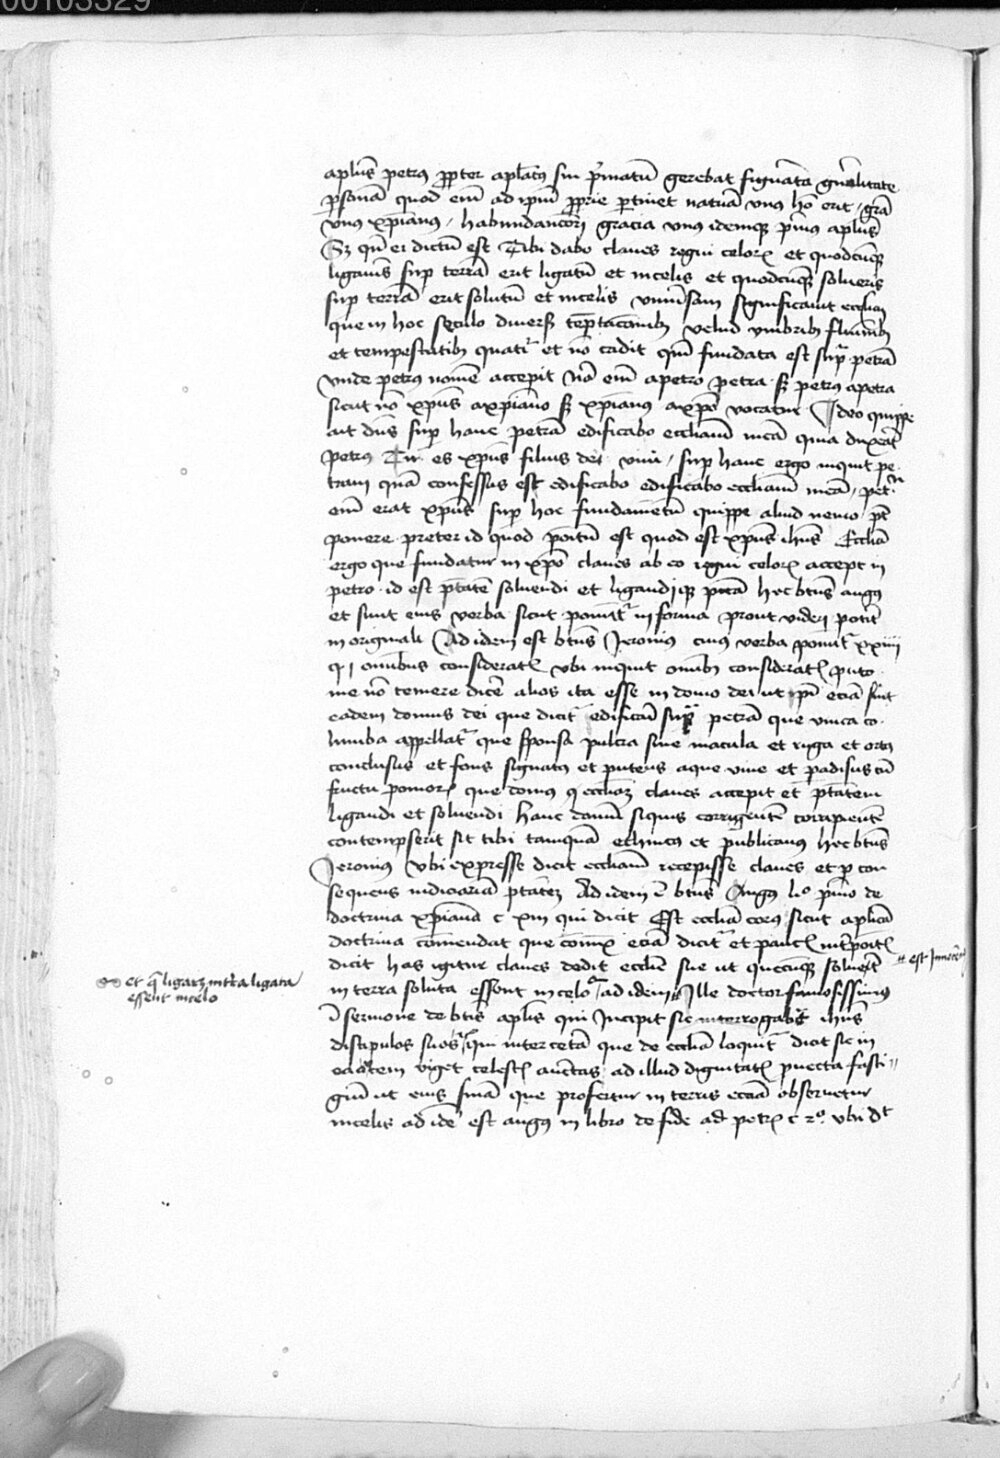 00103329
aplus petrus ppter aplatus sui pmatu gerebat figurata gnalitate
psona quod em ad ipm pprie ptinet natura unus ho erat gra
unus xpianus habundanciori gracia unus idemque pmus aplus
Sz qn ei dictu est Tibi dabo claves regni celorum et quodcunque
ligaveris sup terra erit ligatu et in celis et quodcunque solveris
sup terra erit solutu et in celis universam significavit eccliam
que in hoc seculo diversis teptacionibus velud ymbribus fluminibus
et tempestatibus quatitur et no cadit qm fundata est supra petra
unde petrus nome accepit No em a petro petra sz petrus a petra
sicut no xpus a xpiano sz xpianus a xpo vocatur Ideo quippe
ait dns sup hanc petra edificabo eccliam mea quia dixerat
petrus Tu es xpus filius dei vivi sup hanc ergo inquit pe
tram qua confessus es edificabo edificabo eccliam mea petra
em erat xpus sup hoc fundametu quippe aliud nemo pt
ponere preter id quod positu est quod est xpus ihus Ecclia
ergo que fundatur in xpo claves ab eo regni celorum accepit in
petro id est ptate solvendi et ligandique pcta hec btus augus
et sunt eius verba sicut ponutur in forma prout videri poterit
in originali Ad idem est btus Jeronimus cuius verba ponutur xxiiii
q i omnibus consideratis ubi inquit omnibus consideratis puto
me no temere dicere alios ita esse in domo dei ut ipi eciam sint
eadem domus dei que dicitur edificari supra petra que unica co
lumba appellatur que sponsa pulcra sine macula et ruga et ortus
conclusus et fons signatus et puteus aque vive et padisus cu
fructu pomorum que domus ecclia claves accepit et ptatem
ligandi et solvendi hanc domu siquis corrigente corripiente
contempserit sit tibi tamqua ethnicus et publicanus hec btus
Jeronimus ubi expresse dicit eccliam recepisse claves et p con
sequens iudiciaria ptate Ad idem e btus Augus lio pmo de
doctrina xpiana c xiii qui dicit Est ecclia corpus sicut aplica
doctrina comendat que coniux ecia dicitur et paucis interpositis
dicit has igitur claves dedit ecclie sue ut quecunque solveret
in terra soluta essent in celo ad idem Ille doctor famosissimus
i sermone de btis aplis qui Incipit sic interrogabat ihus
discipulos suos qui inter cetera que de ecclia loquitur dicit sic in
ea autem viget celestis auctas ad illud dignitatis pvecta fasti
giu ut eius sma que profertur in terris ecia observetur
in celis ad ide est augus in libro de fide ad petrum c 2o ubi dt
est Innocen
et que ligaret in terra ligata
essent in celo